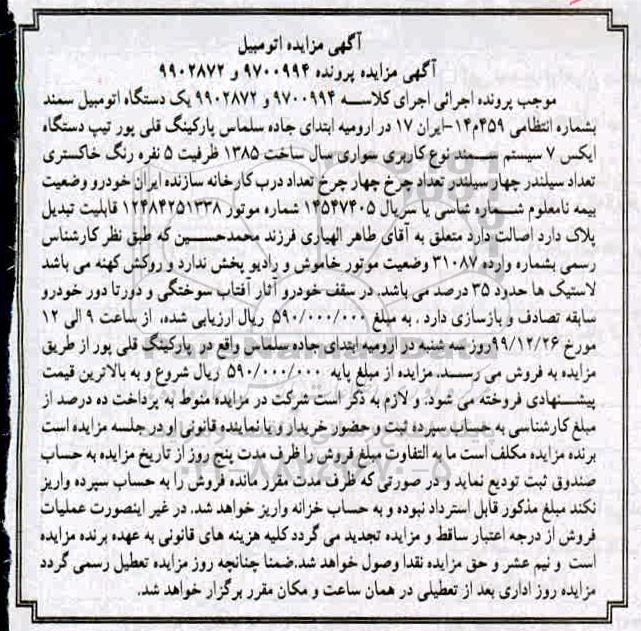 آگهی مزایده اتومبیل
آگهی مزایده پرونده ۹۷۰۰۹۹۴ و ۹۹۰۲۸۷۲
موجب پرونده اجرائی اجرای کلاسه ۹۷۰۰۹۹۴ و ۹۹۰۲۸۷۲ یک دستگاه اتومبیل سمند
بشماره انتظامی ۴۵۹م۱۴-ایران ۱۷ در ارومیه ابتدای جاده سلماس پارکینگ قلی پور تیپ دستگاه
ایکس ۷ سیستم سمند نوع کاربری سواری سال ساخت ۱۳۸۵ ظرفیت ۵ نفره رنگ خاکستری
تعداد سیلندر چهار سیلندر تعداد چرخ چهار چرخ تعداد درب کارخانه سازنده ایران خودرو وضعیت
بیمه نامعلوم شماره شاسی یا سریال ۱۴۵۴۷۴۰۵ شماره موتور ۱۲۴۸۴۲۵۱۳۳۸ قابلیت تبدیل
پلاک دارد اصالت دارد متعلق به آقای طاهر الهیاری فرزند محمدحسین که طبق نظر کارشناس
رسمی بشماره وارده ۳۱۰۸۷ وضعیت موتور خاموش و رادیو پخش ندارد و روکش کهنه می باشد
لاستیک ها حدود ۳۵ درصد می باشد. در سقف خودرو آثار آفتاب سوختگی و دورتا دور خودرو
سابقه تصادف و بازسازی دارد . به مبلغ ۵۹۰/۰۰۰/۰۰۰ ریال ارزیابی شده، از ساعت ۹ الی ۱۲
مورخ ۹۹/۱۲/۲۶روز سه شنبه در ارومیه ابتدای جاده سلماس واقع در پارکینگ قلی پور از طریق
مزایده به فروش می رسد. مزایده از مبلغ پایه ۵۹۰/۰۰۰/۰۰۰ ریال شروع و به بالاترین قیمت
پیشنهادی فروخته می شود. و لازم به ذکر است شرکت در مزایده منوط به پرداخت ده درصد از
مبلغ کارشناسی به حساب سپرده ثبت و حضور خریدار و یا نماینده قانونی او در جلسه مزایده است
برنده مزایده مکلف است ما به التفاوت مبلغ فروش را ظرف مدت پنج روز از تاریخ مزایده به حساب
صندوق ثبت تودیع نماید و در صورتی که ظرف مدت مقرر مانده فروش را به حساب سپرده واریز
نکند مبلغ مذکور قابل استرداد نبوده و به حساب خزانه واریز خواهد شد. در غیر اینصورت عملیات
فروش از درجه اعتبار ساقط و مزایده تجدید می گردد کلیه هزینه های قانونی به عهده برنده مزایده
است و نیم عشر و حق مزایده نقدا وصول خواهد شد.ضمنا چنانچه روز مزایده تعطیل رسمی گردد
مزایده روز اداری بعد از تعطیلی در همان ساعت و مکان مقرر برگزار خواهد شد.